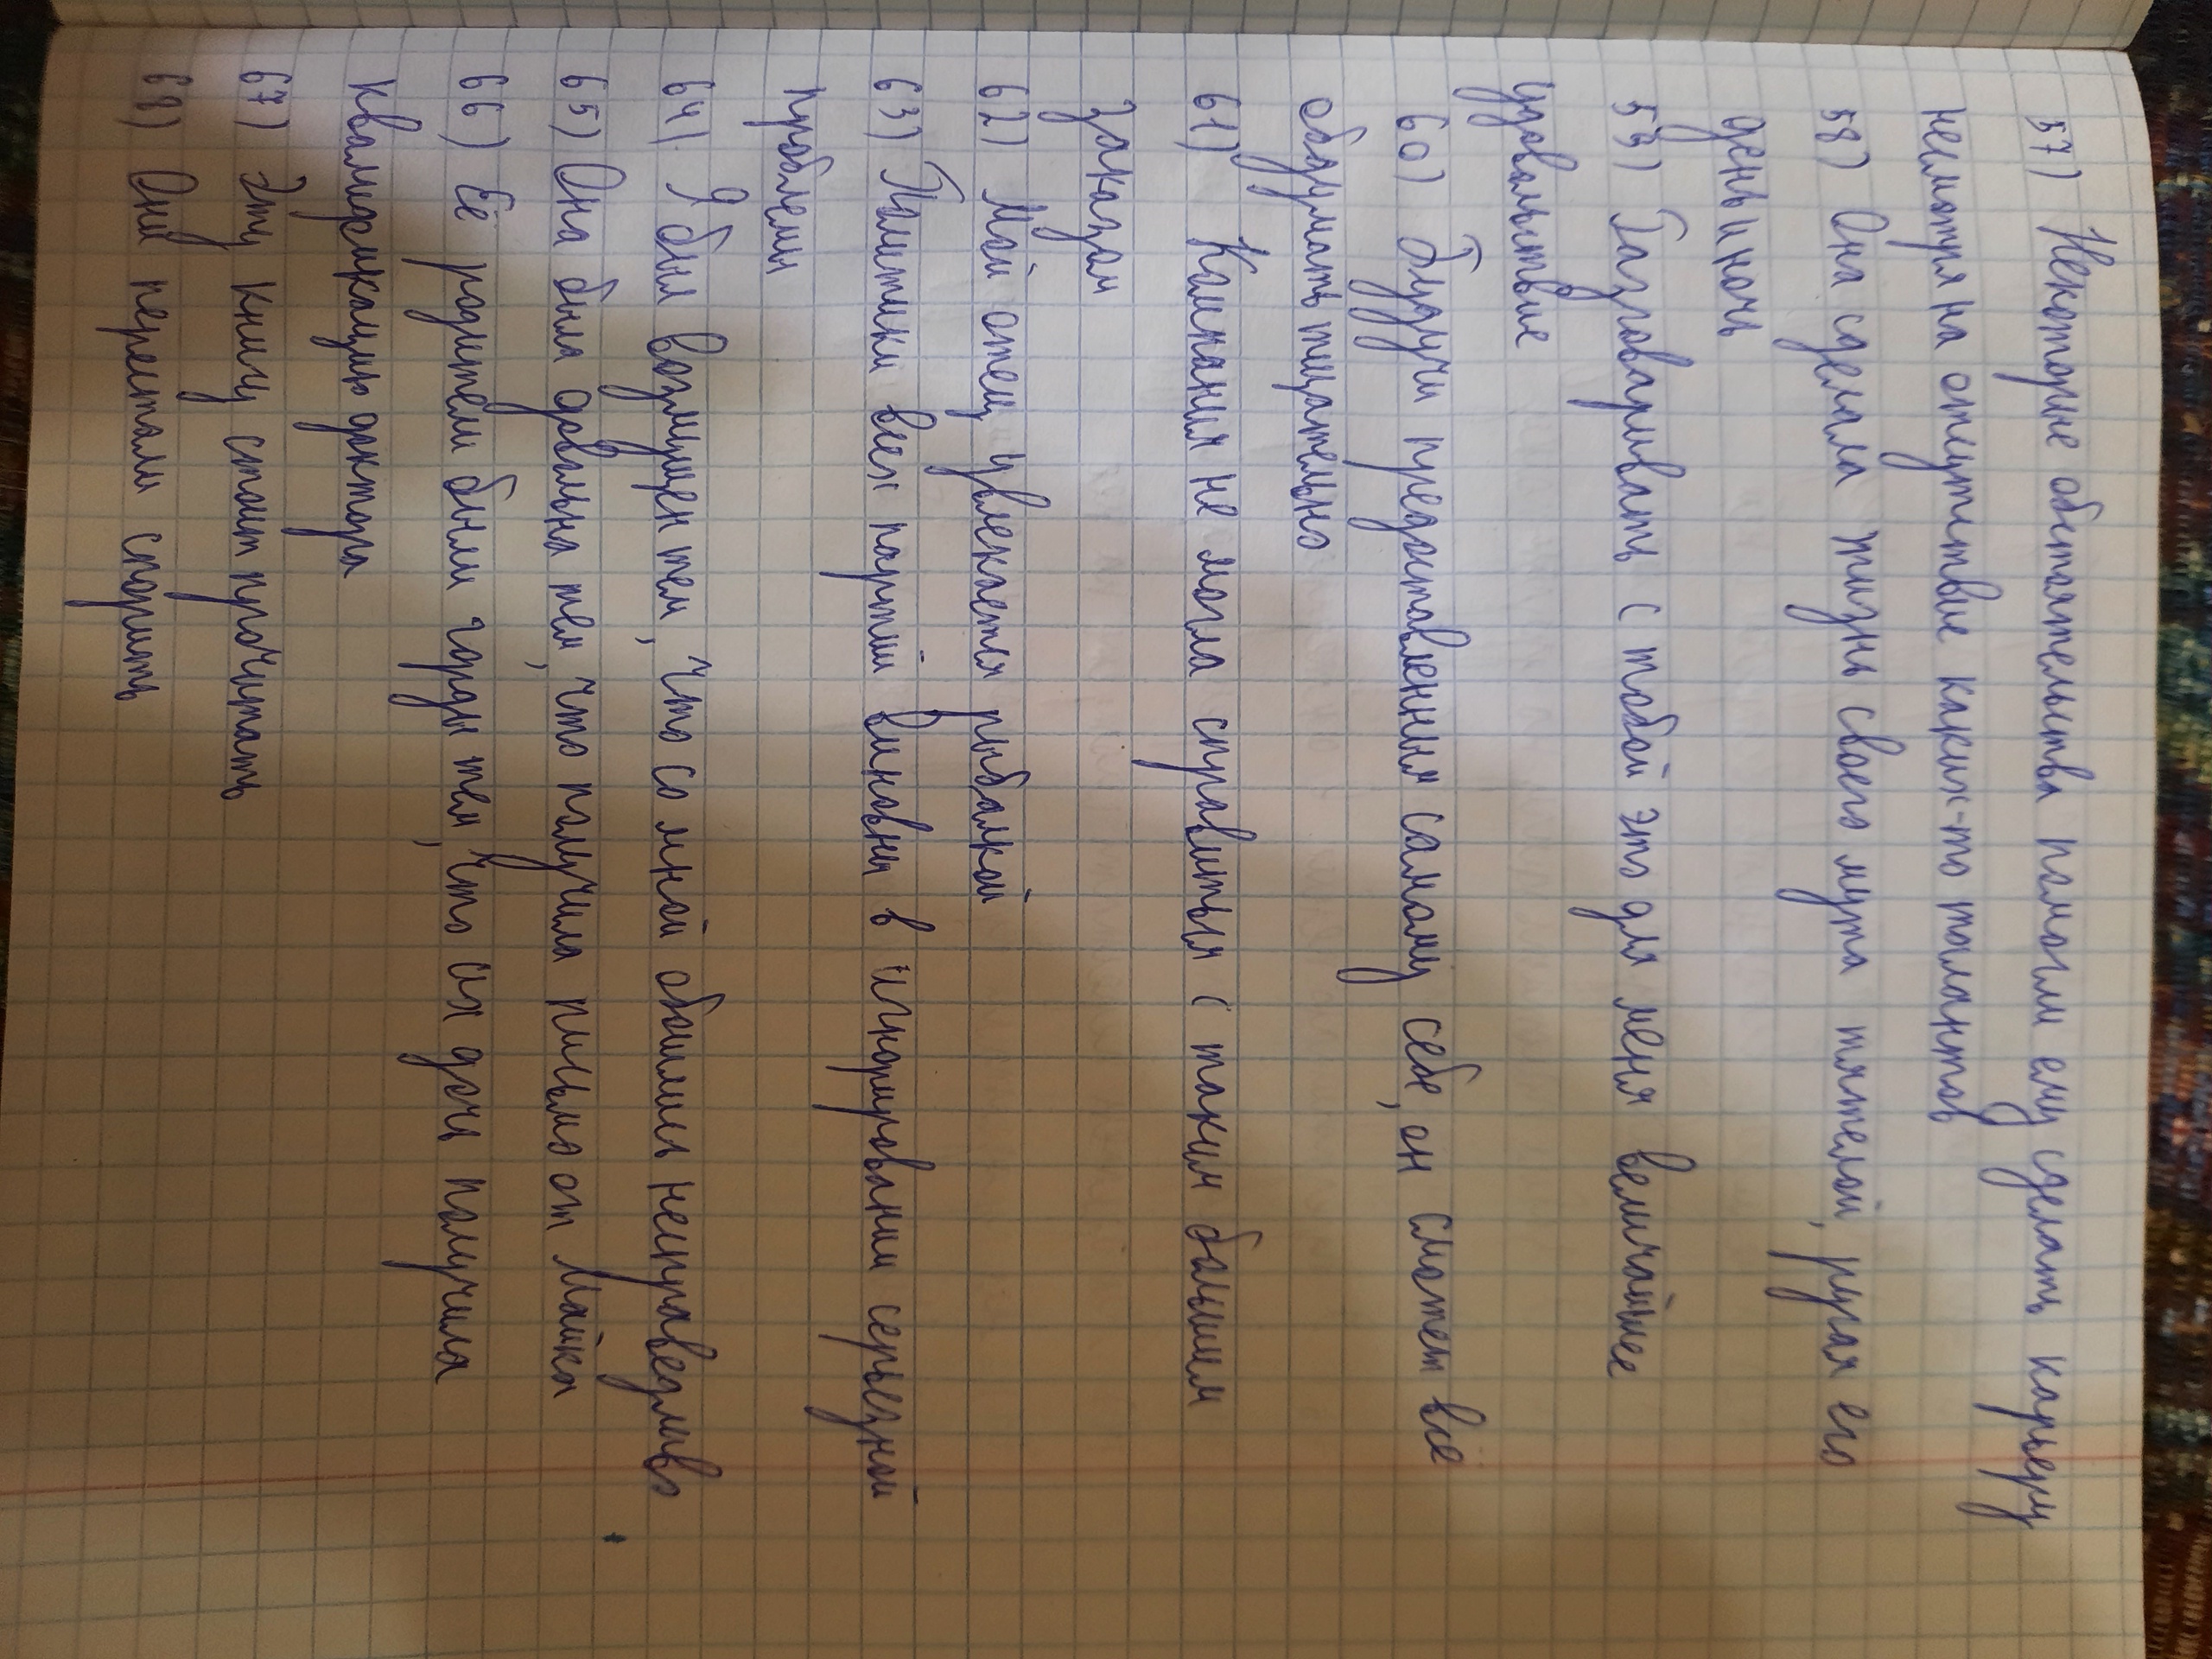 57) Некоторые обстоятельства помогли ему сделать карьеру
несмотря на отсутствие каких-то талантов
58) Она сделала жизнь своего мужа тяжелой, ругая его
день и ночь
59) Разговаривать с тобой это для меня величайшее
удовольствие
60) Будучи предоставленным самому себе, он сможет все
обдумать тщательно
61) Компания не могла справиться с таким большим
заказом
62) Мой отец увлекается рыбалкой
63) Политики всех партий виновны в игнорировании серьезной
проблемы
64) Я был возмущен тем, что со мной обошлись несправедливо
65) Она была довольна тем, что получила письмо от Майка
66) Её родители были горды тем, что их дочь получила
квалификацию доктора
67) Эту книгу стоит прочитать
68) Они перестали спорить